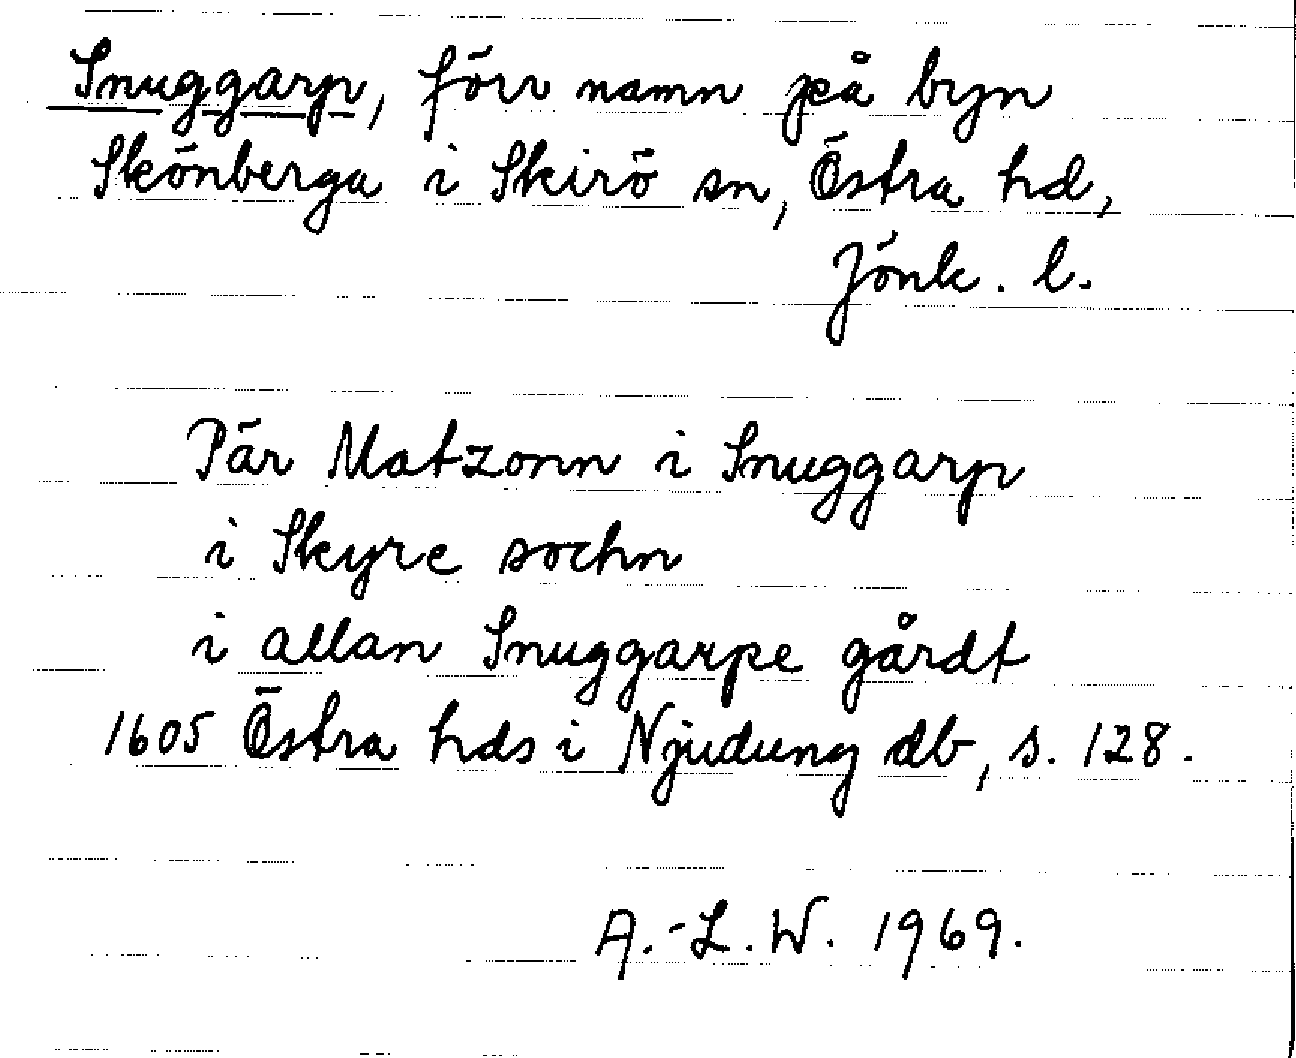 Snuggarp, förr namn på byn
Skönberga i Skirö sn, Östra hd,
Jönk. l.
Pär Matzonn i Snuggarp
i Skyre sochn
i allan Snuggarpe gårdt
1605 Östra hds i Njudung db, s. 128.
A.-L.W. 1969.